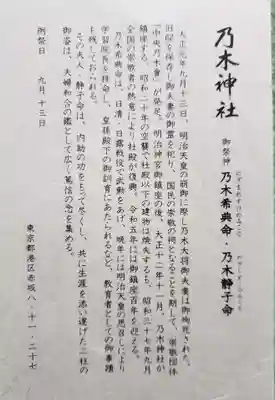 乃木神社
御祭神 乃木希典命・乃木静子命
大正元年九月十三日、明治天皇の崩御に際し乃木大将御夫妻は御殉死された。
旧邸を保存し御夫妻の御霊を祀り、国民の崇敬の祠となることを期して、崇敬団体
「中央乃木會」が発足。明治神宮御鎮座の後、大正十二年十一月、乃木神社が
鎮座する。昭和二十年の空襲で社殿以下の建物は焼失するも、昭和三十七年九月
全国の崇敬者の熱意により社殿が復興。令和五年には御鎮座百年を迎える。
乃木希典命は、日清、日露戦役で武勲をあげ、晩年には明治天皇の思召しにより
学習院長を拝命し、皇孫殿下の御訓育にあたられるなど、教育者としての御事蹟
も残しておられる。
その夫人・静子命は、内助の功をもって尽くし、共に生涯を添い遂げた二柱の
御姿は、夫婦和合の鑑として広く篤信の念を集める。
例祭日 九月十三日
東京都港区赤坂八‐十一‐二十七